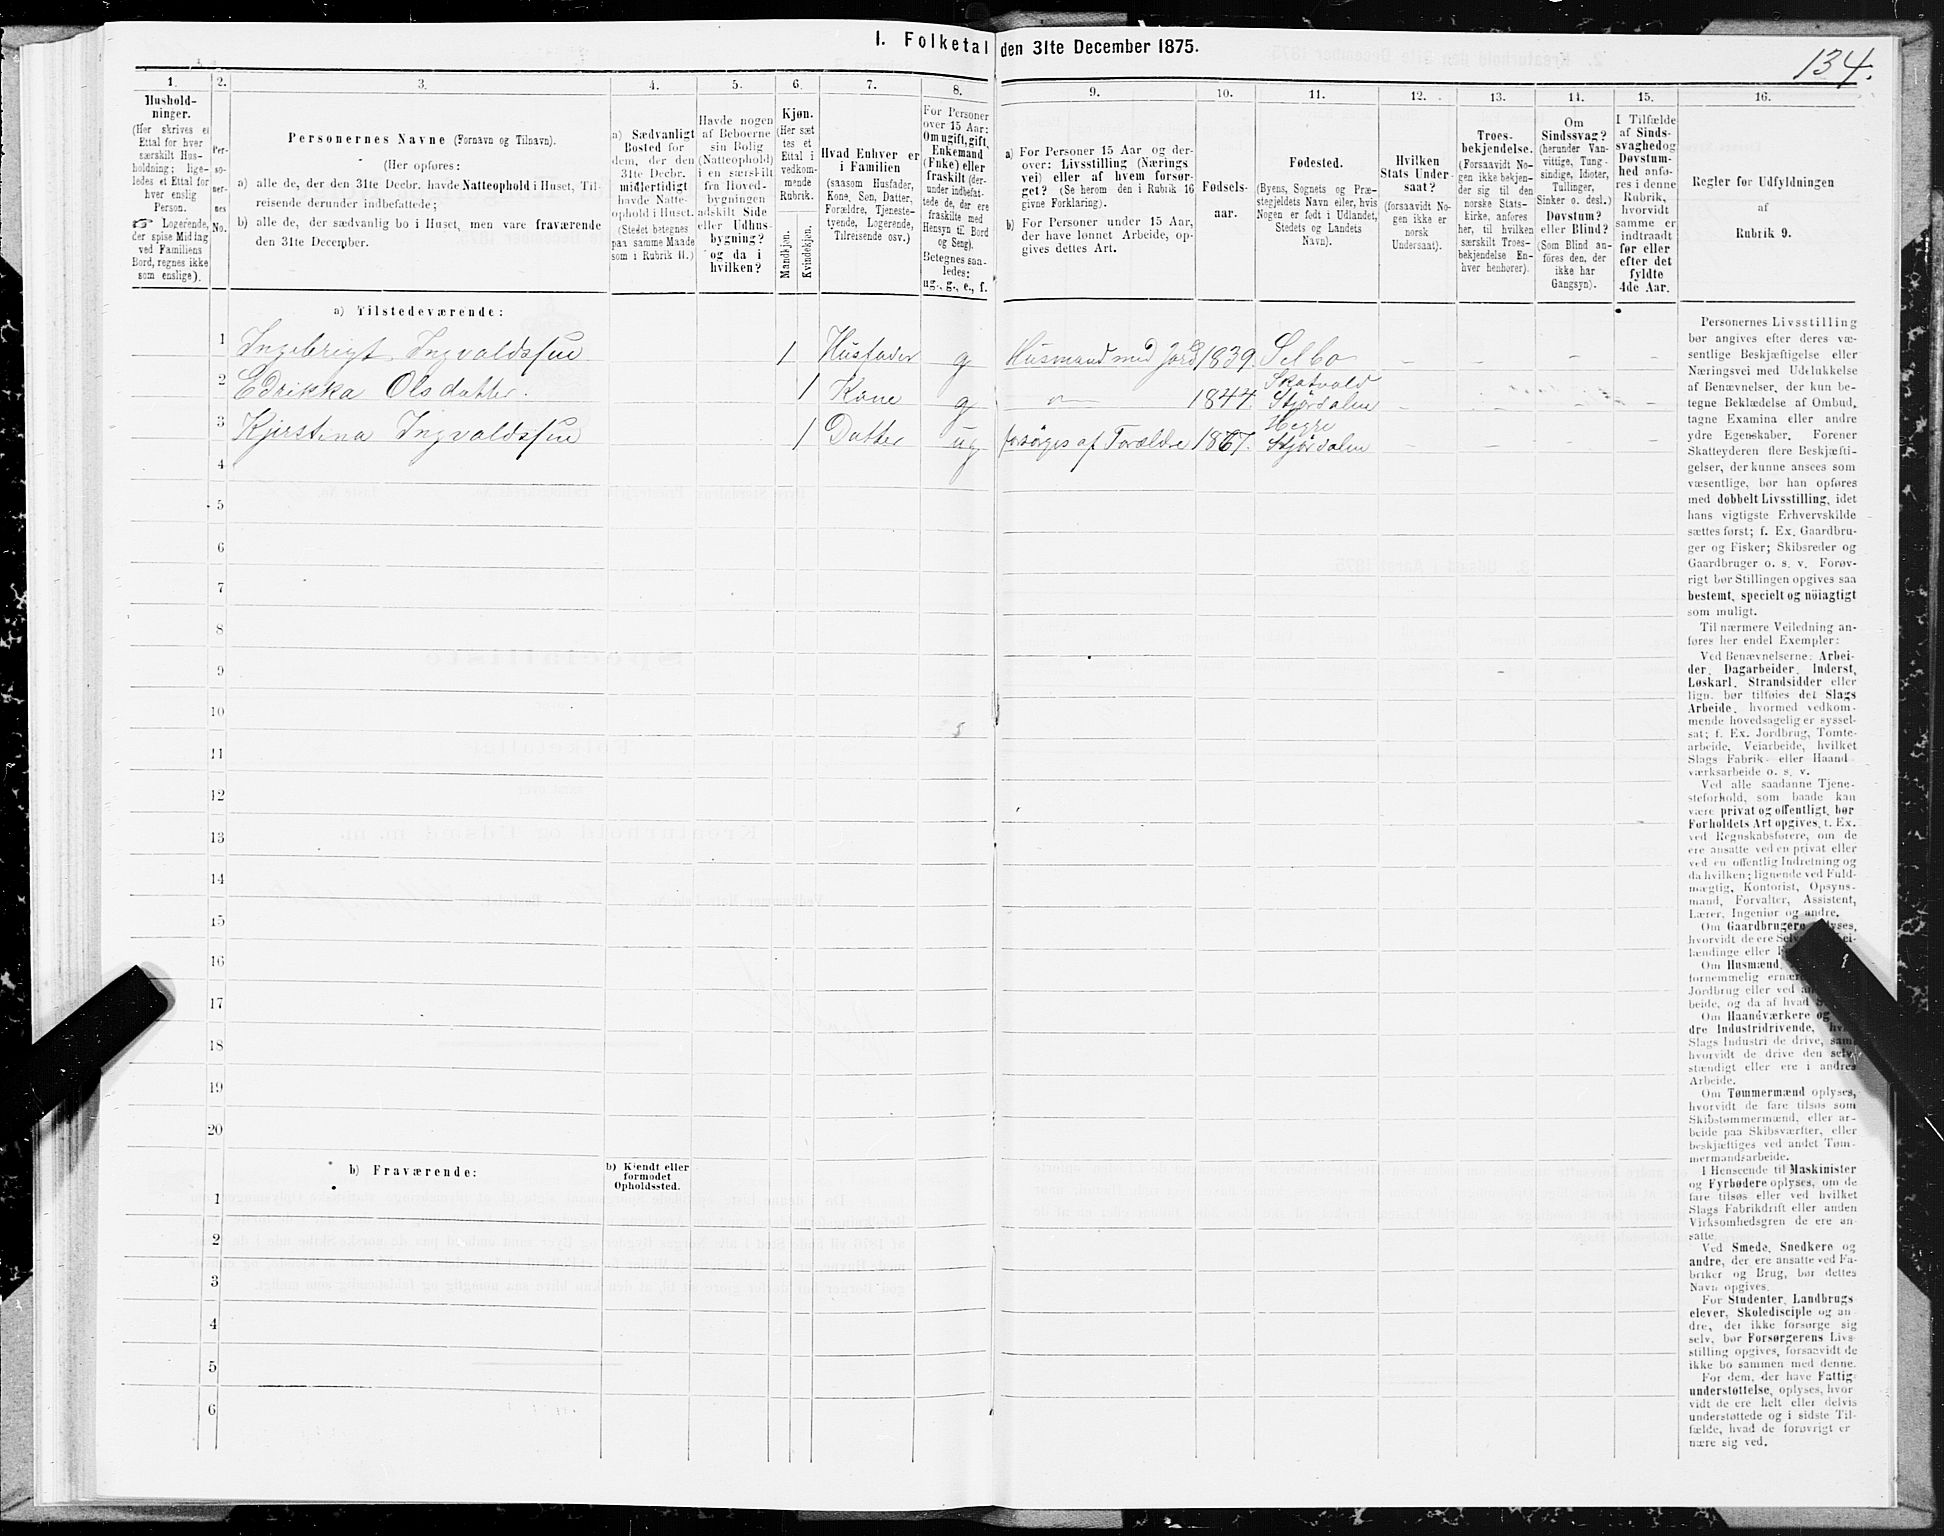 I. Folketal den 31te December 1875.
134.
1.
Hushold-
ninger.
(Her skrives et
Ettal for hver
særskilt Hus-
holdning; lige-
ledes et Ettal for
hver enslig
Person.
Logerende,
der spise Middag
ved Familiens
Bord, regnes ikke
som enslige).
2.
Per-
so-
ner-
nes
No.
3.
Personernes Navne (Fornavn og Tilnavn).
(Her opføres:
a) alle de, der den 31te Decbr. havde Natteophold i Huset, Til-
reisende derunder indbefattede;
b) alle de, der sædvanlig bo i Huset, men vare fraværende
den 31te December.
4.
a) Sædvanligt
Bosted for
dem, der den
31te Decbr.
midlertidigt
havde Natte-
ophold i Huset.
(Stedet betegnes
paa samme Maade
som i Rubrik 11.)
5.
Havde nogen
af Beboerne
sin Bolig
(Natteophold)
i en særskilt
fra Hoved-
bygningen
adskilt Side
eller Udhus-
bygning?
og da i
hvilken?
6.
Kjøn.
(Her sæt
tes et
Ettal i
vedkom-
mende
Rubrik.
Mandkjøn.
Kvindekjøn.
7.
Hvad Enhver er
i Familien
(saasom Husfader,
Kone, Søn, Datter,
Forældre, Tjeneste-
tyende, Logerende,
Tilreisende osv.)
8.
For Personer
over 15 Aar:
Om ugift, gift,
Enkemand
(Enke) eller
fraskilt (der-
under indbefat-
tede de, der ere
fraskilte med
Hensyn til Bord
og Seng).
Betegnes saa-
ledes:
ug., g., e., f.
9.
a) For Personer 15 Aar og der-
over: Livsstilling (Nærings
vei) eller af hvem forsør-
get? (Se herom den i Rubrik 16
givne Forklaring).
b) For Personer under 15 Aar,
der have lønnet Arbeide, op-
gives dettes Art.
10.
Fødsels-
aar.
11.
Fødested.
(Byens, Sognets og Præ-
stegjeldets Navn eller, hvis
Nogen er født i Udlandet,
Stedets og Landets
Navn).
12.
Hvilken
Stats Under-
saat?
(forsaavidt No-
gen ikke er
norsk
Undersaat).
13.
Troes-
bekjendelse.
(Forsaavidt No-
gen ikke bekjen-
der sig til den
norske Stats-
kirke, anføres
her, til hvilken
særskilt Troes-
bekjendelse En-
hver henhører).
14.
Om
Sindssvag?
(herunder Van-
vittige, Tung-
sindige, Idioter,
Tullinger,
Sinker o. desl.)
Døvstum?
eller Blind?
(Som Blind an-
føres den, der
ikke har
Gangsyn).
15.
I Tilfælde
af Sinds-
svaghed og
Døvstum-
hed anfø-
res i denne
Rubrik,
hvorvidt
samme er
indtraadt
før eller
efter det
fyldte
4de Aar.
16.
Regler for Udfyldningen
af
Rubrik 9.
a) Tilstedeværende:
1 Ingebrigt Ingvaldssen 1 Husfader g Husmand med Jord 1839. Selbo - - - -
2 Edrikka Olsdatter. 1 Kone g 1844. Skatvold Stjørdalen - - - -
3 Kjerstina Ingvaldssen 1 Datter ug forsørges af Forældre 1867. Hegre Stjørdalen - - - -
4
5
6
7
8
9
10
11
12
13
14
15
16
17
18
19
20
b) Fraværende:
b) Kjendt eller
formodet
Opholdssted.
1
2
3
4
5
6
Personernes Livsstilling
bør angives efter deres væ-
sentlige Beskjæftigelse eller
Næringsvei med Udelukkelse
af Benævnelser, der kun be-
tegne Beklædelse af Ombud,
tagne Examina eller andre
ydre Egenskaber. Forener
Skatteyderen flere Beskjæfti-
gelser, der kunne ansees som
væsentlige, bør han opføres
med dobbelt Livsstilling, idet
hans vigtigste Erhvervskilde
sættes først; f. Ex. Gaardbru-
ger og Fisker; Skibsreder og
Gaardbruger o. s. v. Forøv-
rigt bør Stillingen opgives saa
bestemt, specielt og nöiagtigt
som muligt.
Til nærmere Veiledning an-
føres her endel Exempler:
Ved Benævnelserne: Arbei-
der, Dagarbeider, Inderst,
Løskarl, Strandsidder eller
lign. bør tilføies det Slags
Arbeide, hvormed vedkom-
mende hovedsagelig er syssel-
sat; f. Ex. Jordbrug, Tomte-
arbeide, Veiarbeide, hvilket
Slags Fabrik- eller Haand-
værksarbeide o. s. v.
Ved alle saadanne Tjene-
steforhold, som baade kan
være privat og offentligt, bør
Forholdets Art opgives, t. Ex.
ved Regnskabsførere, om de
ere ansatte ved en privat eller
ved en offentlig Indretning og
da hvilken; lignende ved Fuld-
mægtig, Kontorist, Opsyns-
mand, Forvalter, Assistent,
Lærer, Ingeniør og andre.
Om Gaardbrugere oplyses,
hvorvidt de ere
lændinge eller
Om Husmænd,
fornemmelig
Jordbrug eller ved
beide, og da af hvad
Om Haandværkere og
dre Industridrivende,
Slags Industri de drive, samt
hvorvidt de drive den selv-
stændigt eller ere i andres
Arbeide.
Om Tømmermænd oplyses,
hvorvidt de fare tilsøs som
Skibstømmermænd, eller ar-
beide paa Skibsværfter, eller
beskjæftiges ved andet Tøm-
mermandsarbeide.
I Henseende til Maskinister
og Fyrbødere oplyses, om de
fare tilsøs eller ved hvilket
Slags Fabrikdrift eller anden
Virksomhedsgren de ere an-
satte.
Ved Smede, Snedkere og
andre, der ere ansatte ved Fa-
briker og Brug, bør dettes
Navn opgives.
For Studenter, Landbrugs-
elever, Skoledisciple og an-
dre, der ikke forsørge sig
selv, bør Forsørgerens Livs-
stilling opgives, forsaavidt de
ikke bo sammen med denne.
For dem, der have Fattig-
understøttelse, oplyses, hvor-
vidt de ere helt eller delvis
understøttede og i sidste Til-
fælde, hvad de forøvrigt er-
nære sig ved.